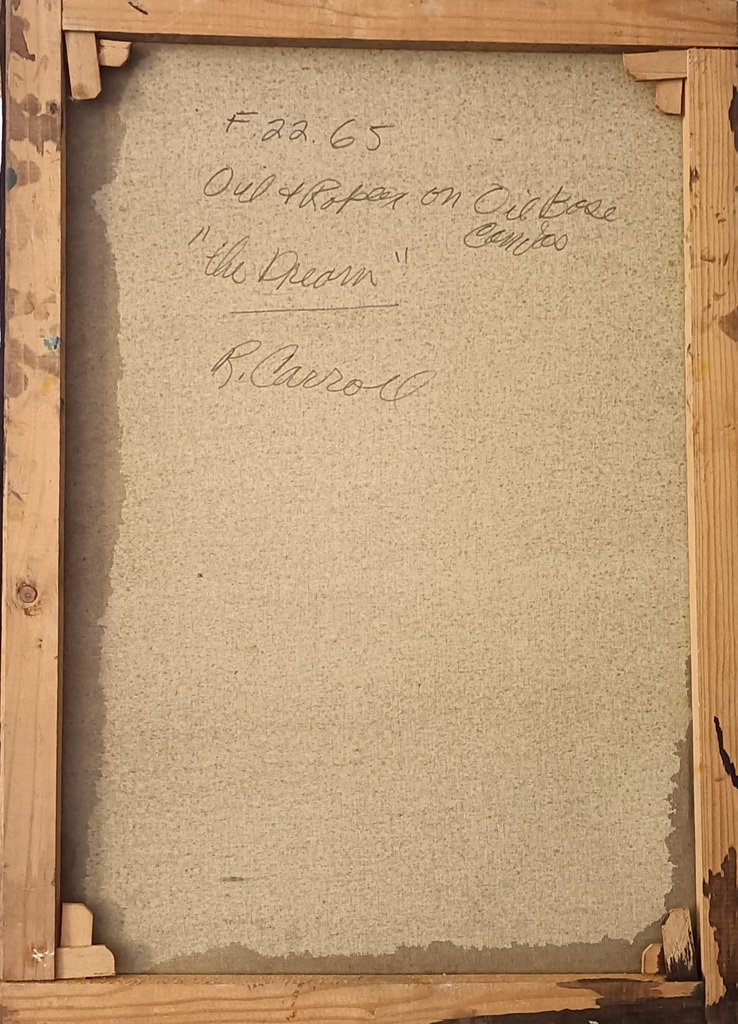 F. 22. 65
Oil + on Oil Base
Canvas
"the Dream"
R. Carroll